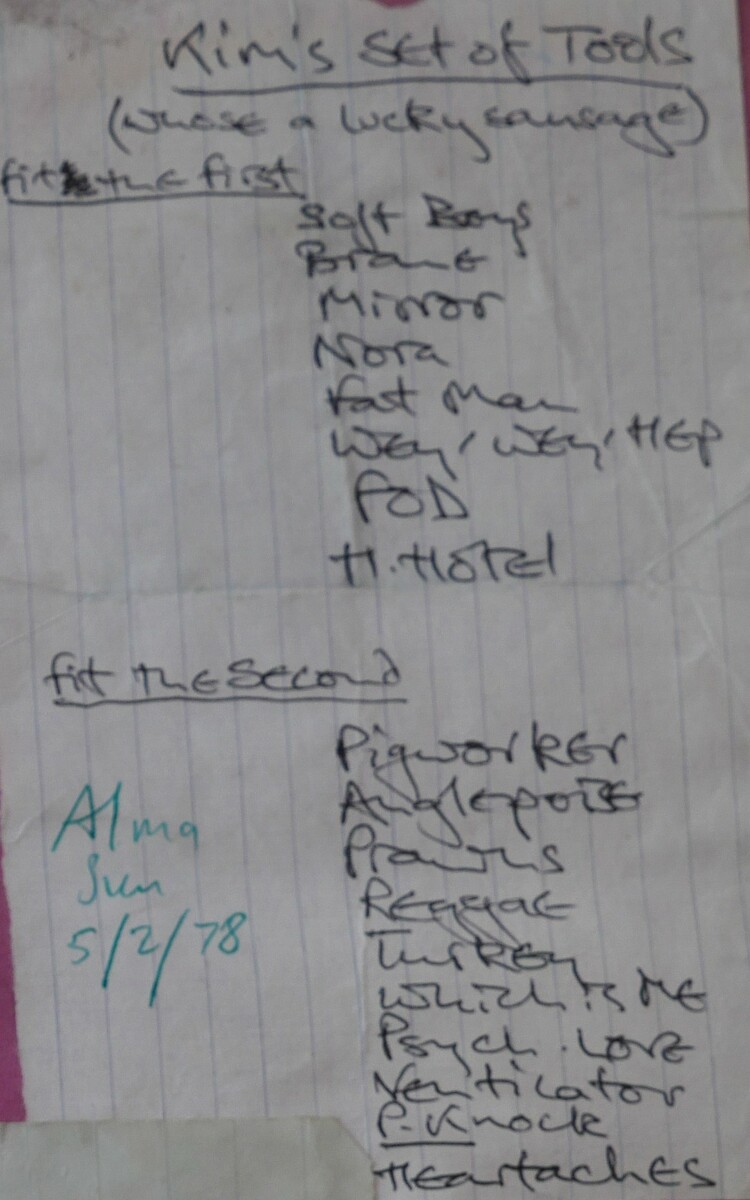 Kim's Set of Tools
(whose a lucky sausage)
fit the first
Soft Boys
Brane
Mirror
Nora
Fat Man
WEy, WEy, HEP
FOD
H.HOTEl
fit the Second
PigworkEr
AnglEpoisE
Prawns
REggaE
TurkEy
Which is ME
Psych. LovE
Ventilator
P.Knock
HEartachES
Alma
Sun
5/2/78